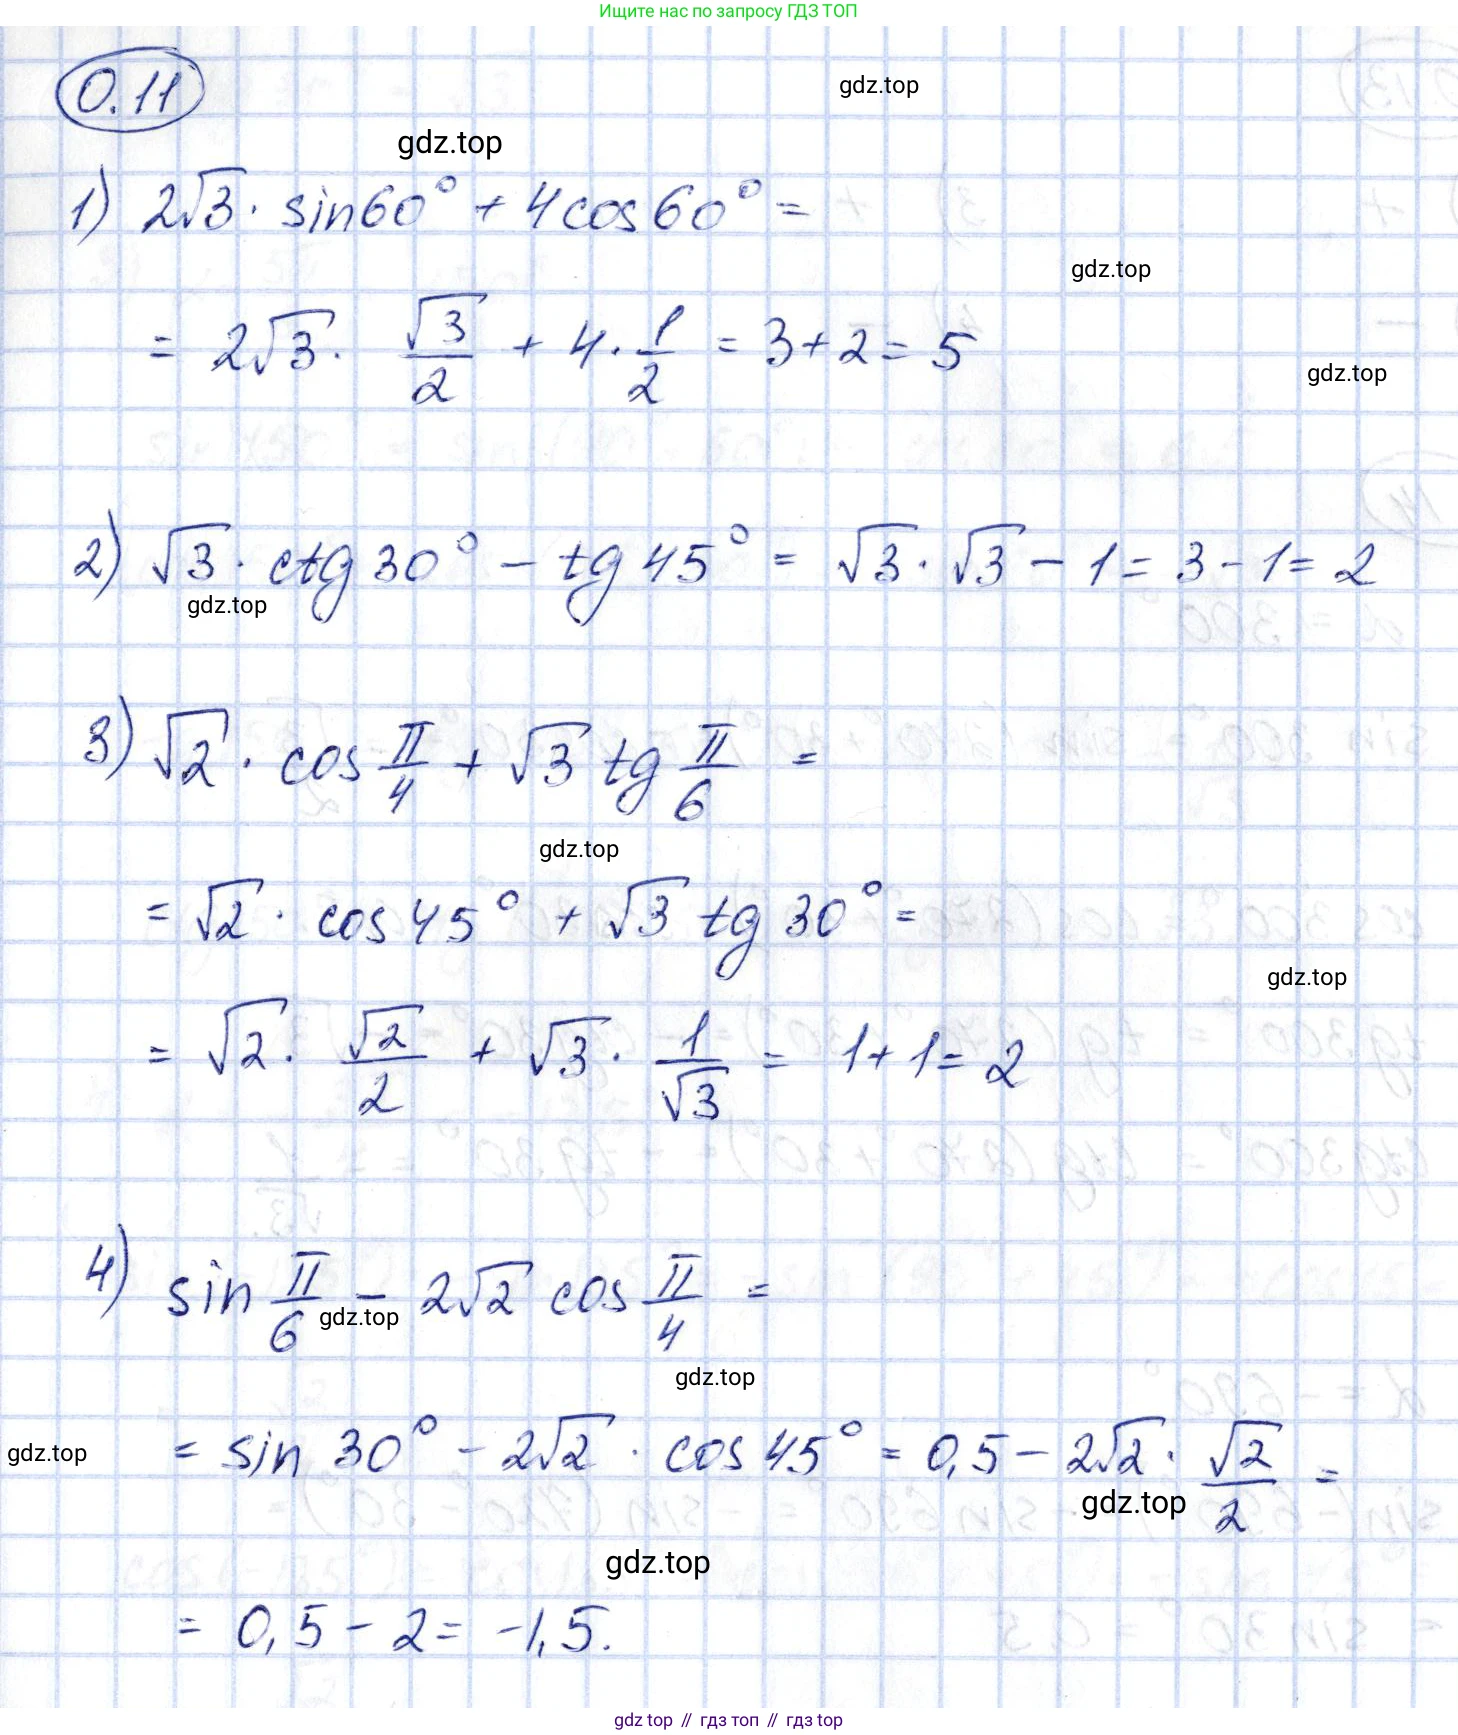 Ищите нас по запросу ГДЗ ТОП
0.11
gdz.top
gdz.top
1) 2√3 · sin60° + 4cos60° =
gdz.top
= 2√3 · √3/2 + 4 · 1/2 = 3+2 = 5
gdz.top
2) √3 · ctg 30° − tg 45° = √3 · √3 − 1 = 3 − 1 = 2
gdz.top
3) √2 · cos π/4 + √3 tg π/6 =
gdz.top
= √2 · cos 45° + √3 tg 30° =
gdz.top
= √2 · √2/2 + √3 · 1/√3 = 1+1 = 2
4) sin π/6 − 2√2 cos π/4 =
gdz.top
gdz.top
= sin 30° − 2√2 · cos 45° = 0,5 − 2√2 · √2/2 =
gdz.top
gdz.top
gdz.top
= 0,5 − 2 = −1,5.
gdz top // гдз топ // gdz top